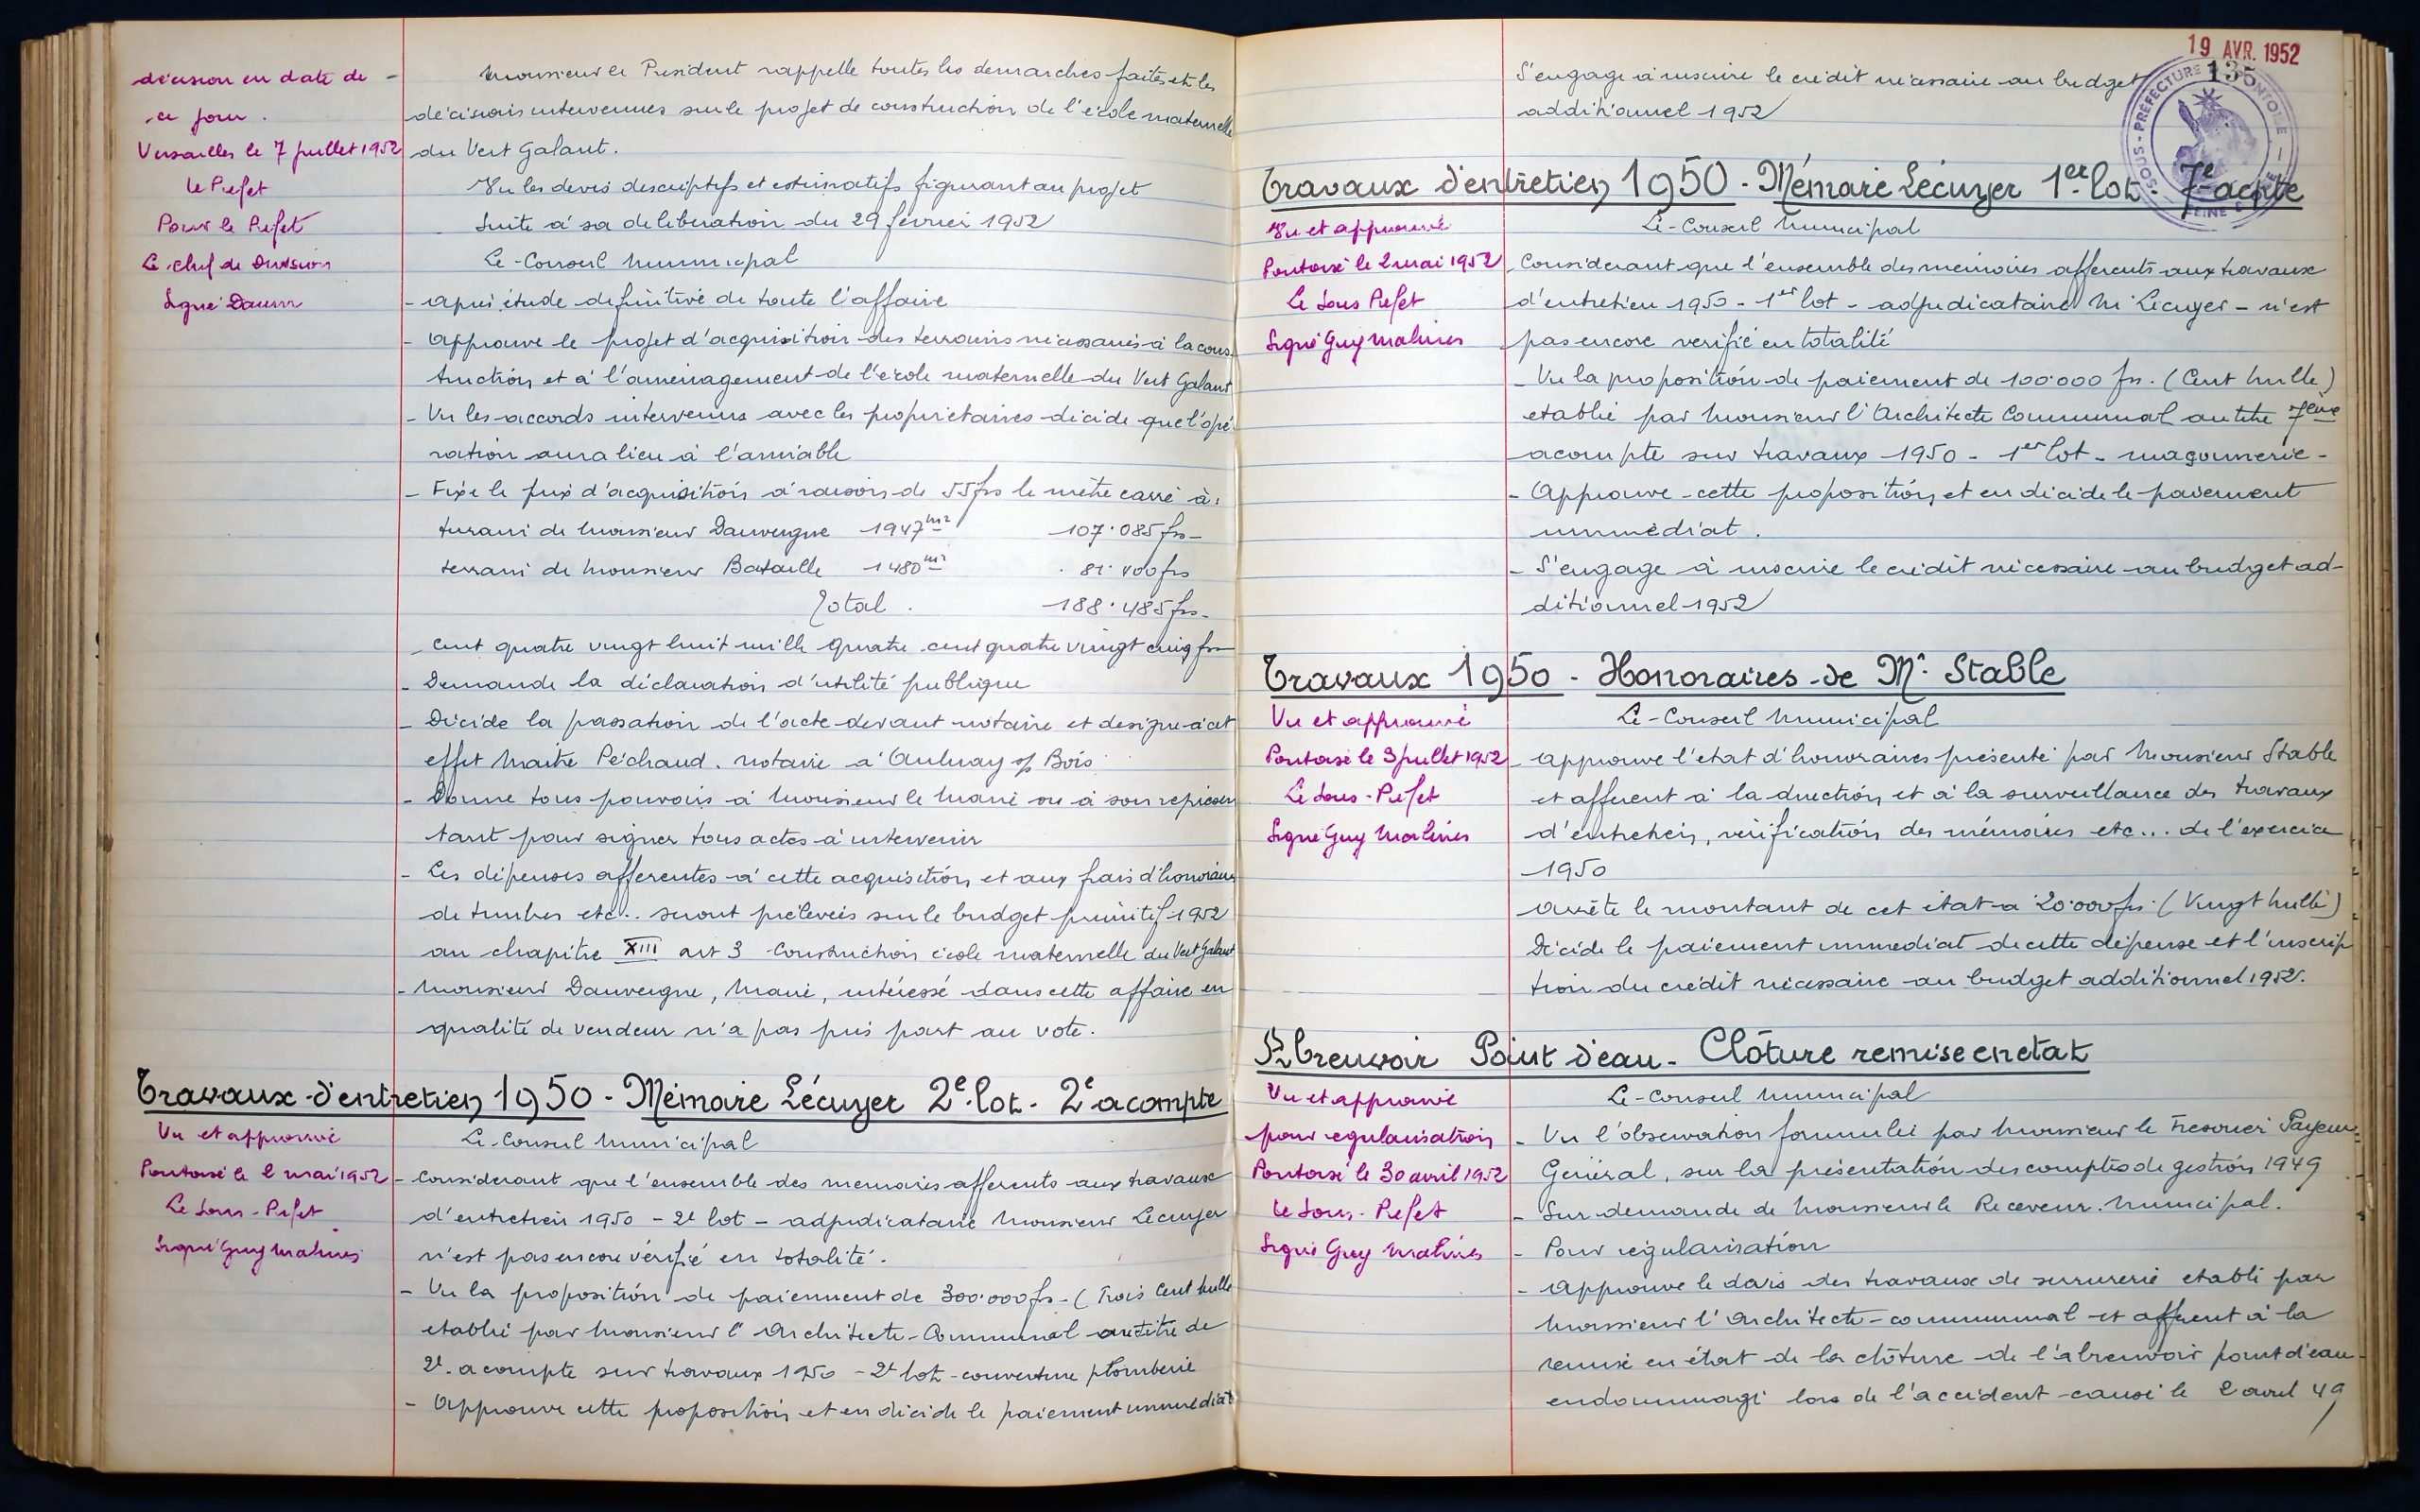 décision en date de -
ce jour.
Versailles le 7 juillet 1952
Le Prefet
Pour le Prefet
Le chef de Division
Signé Daum
Monsieur le President rappelle toutes les demarches faites et les
décisions intervenues sur le projet de construction de l'école maternelle
du Vert Galant.
Vu les devis descriptifs et estimatifs figurant au projet
Suite à sa deliberation du 29 fevrier 1952
Le Conseil Municipal
- après étude definitive de toute l'affaire
- Approuve le projet d'acquisition des terrains nécessaires à la cons-
truction et à l'aménagement de l'école maternelle du Vert Galant
- Vu les accords intervenus avec les propriétaires décide que l'opé
ration aura lieu à l'amiable
- Fixe le prix d'acquisition à raison de 55 frs le mètre carré à:
terrain de Monsieur Dauvergne 1947 m2 107.085 frs -
terrain de Monsieur Bataille 1480 m2 81.400 frs
Total. 188.485 frs -
- Cent quatre vingt huit mille quatre cent quatre vingt cinq frs
- Demande la déclaration d'utilité publique
- Décide la passation de l'acte devant notaire et designe à cet
effet Maitre Péchaud. notaire à Aulnay s/ Bois
- Donne tous pouvoirs à Monsieur le Maire ou à son represen
tant pour signer tous actes à intervenir
- Les dépenses afferentes à cette acquisition et aux frais d'honoraires
de timbres etc.. seront prélevées sur le budget primitif 1952
au chapitre XIII art 3 Construction école maternelle du Vert Galant
- Monsieur Dauvergne, Maire, intéressé dans cette affaire en
qualité de vendeur n'a pas pris part au vote.
Travaux d'entretien 1950 - Mémoire Lécuyer 2e lot - 2e acompte
Vu et approuvé
Pontoise le 2 mai 1952
Le Sous-Prefet
Signé Guy Malines
Le Conseil Municipal
- Considerant que l'ensemble des memoires afferents aux travaux
d'entretien 1950 - 2e lot - adjudicataire Monsieur Lecuyer
n'est pas encore vérifié en totalité.
- Vu la proposition de paiement de 300.000 frs - (Trois Cent Mille
etablie par Monsieur l'Architecte-Communal au titre de
2e acompte sur travaux 1950 - 2e lot - couverture plomberie
- Approuve cette proposition et en décide le paiement immediat
19 AVR. 1952
135
SOUS-PRÉFECTURE PONTOISE
SEINE
S'engage à inscrire le crédit nécessaire au budget
additionnel 1952
Travaux d'entretien 1950 - Mémoire Lécuyer 1er lot - 7e acpte
Vu et approuvé
Pontoise le 2 mai 1952
Le Sous Prefet
Signé Guy Malines
Le Conseil Municipal
- Considerant que l'ensemble des memoires afferents aux travaux
d'entretien 1950 - 1er lot - adjudicataire M. Lécuyer - n'est
pas encore verifié en totalité
- Vu la proposition de paiement de 100.000 frs. (Cent Mille)
etablie par Monsieur l'Architecte Communal au titre 7ème
acompte sur travaux 1950 - 1er lot - maçonnerie -
- Approuve cette proposition et en décide le paiement
immédiat.
- S'engage à inscrire le crédit nécessaire au budget ad-
ditionnel 1952
Travaux 1950 - Honoraires de Mr. Stable
Vu et approuvé
Pontoise le 3 juillet 1952
Le Sous-Prefet
Signé Guy Malines
Le Conseil Municipal
- Approuve l'etat d'honoraires présenté par Monsieur Stable
et afferent à la direction et à la surveillance des travaux
d'entretien, vérification des mémoires etc... de l'exercice
1950
Arrête le montant de cet état à 20.000 frs. (Vingt Mille)
Décide le paiement immediat de cette dépense et l'inscrip
tion du crédit nécessaire au budget additionnel 1952.
Abreuvoir Point d'eau - Clôture remise en etat
Vu et approuvé
pour regularisation
Pontoise le 30 avril 1952
le Sous-Prefet
Signé Guy Malines
Le Conseil Municipal
- Vu l'observation formulée par Monsieur le Tresorier Payeur-
Général, sur la présentation des comptes de gestion 1949
- Sur demande de Monsieur le Receveur Municipal.
- Pour régularisation
- Approuve le devis des travaux de serrurerie etabli par
Monsieur l'Architecte-communal et afferent à la
remise en état de la clôture de l'abreuvoir point d'eau -
endommagé lors de l'accident causé le 2 avril 49